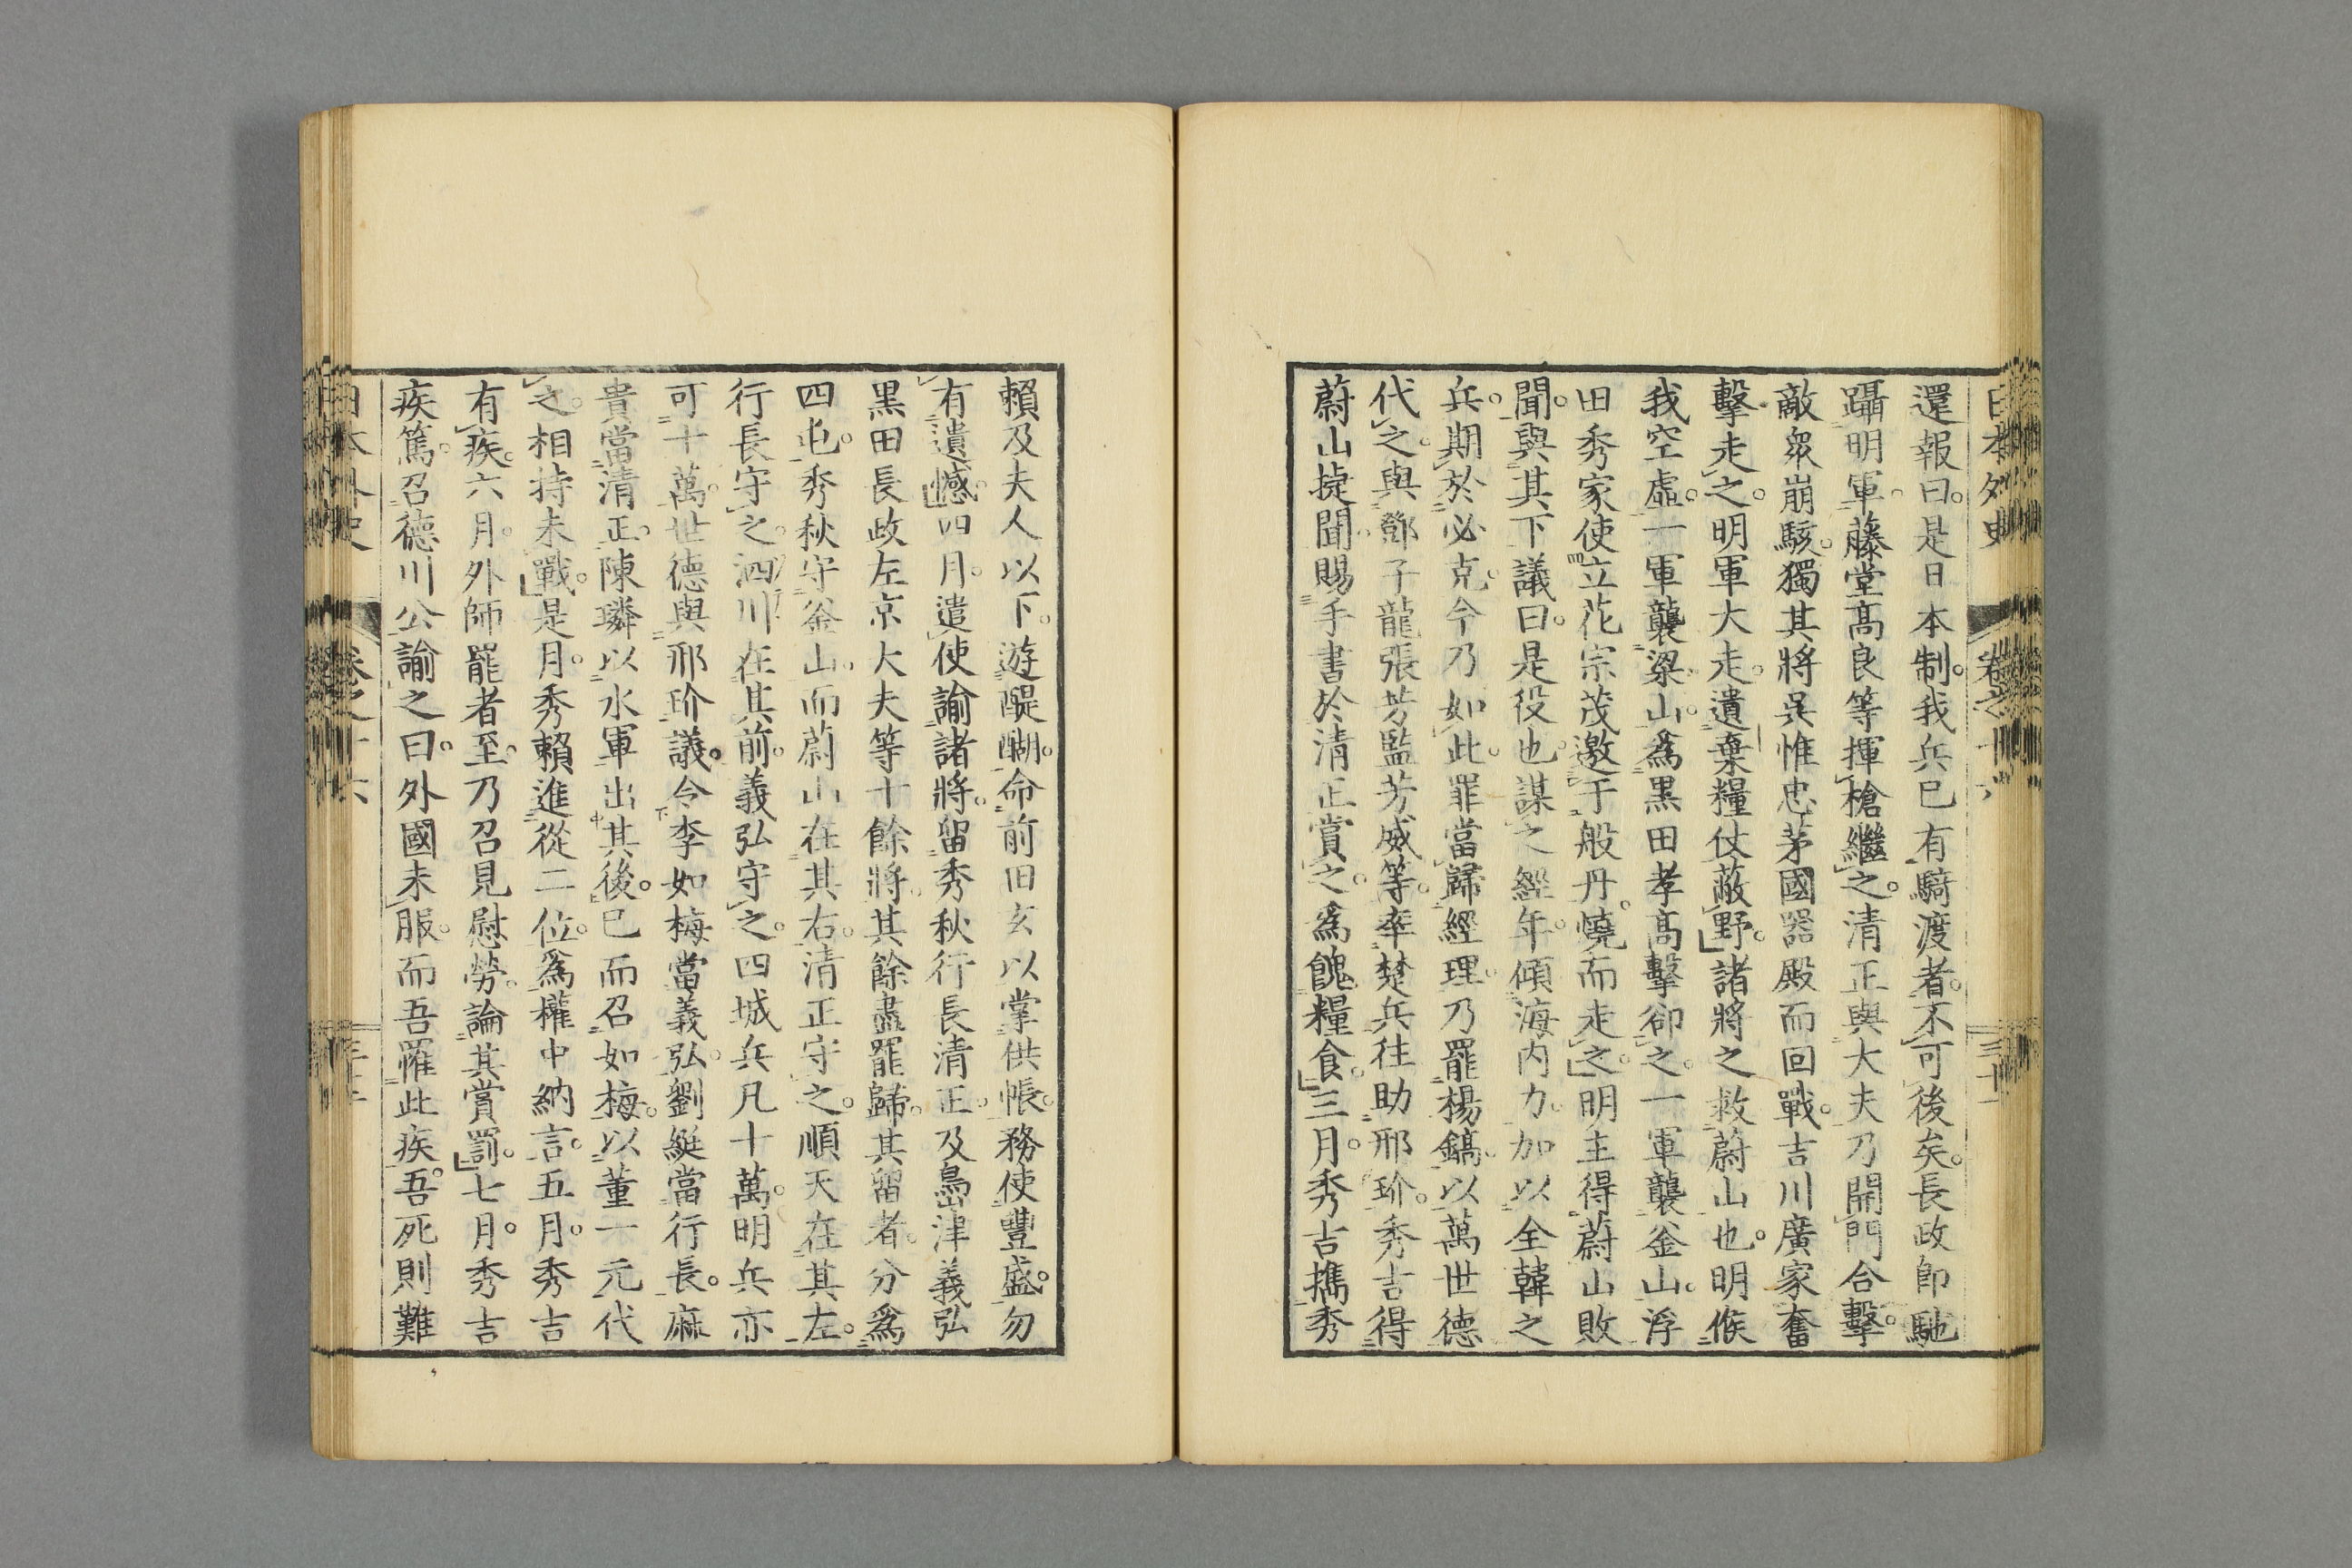 日本外史 卷之十六
還報曰。是日本制。我兵已有騎渡者。不可後矣。長政卽馳
躡明軍。藤堂高良等揮槍繼之。清正與大夫乃開門合擊。
敵衆崩駭。獨其將吳惟忠茅國器殿而回戰。吉川廣家奮
擊走之。明軍大走。遺棄糧仗蔽野。諸將之救蔚山也。明候
我空虛。一軍襲梁山。爲黑田孝高擊卻之。一軍襲釜山。浮
田秀家使立花宗茂邀于般丹。燒而走之。明主得蔚山敗
聞。與其下議曰。是役也。謀之經年。傾海内力。加以全韓之
兵。期於必克。今乃如此。罪當歸經理。乃罷楊鎬。以萬世德
代之。與鄧子龍張芳監芳威等。率楚兵往助邢玠。秀吉得
蔚山捷聞。賜手書於清正賞之。爲餽糧食。三月。秀吉携秀
賴及夫人以下。遊醍醐。命前田玄以掌供帳。務使豐盛。勿
有遺憾。四月。遣使諭諸將。留秀秋行長清正。及島津義弘
黑田長政左京大夫等十餘將。其餘盡罷歸。其留者。分爲
四屯。秀秋守釜山。而蔚山在其右。清正守之。順天在其左。
行長守之。泗川在其前。義弘守之。四城兵凡十萬。明兵亦
可十萬。世德與邢玠議。令李如梅當義弘。劉綎當行長。麻
貴當清正。陳璘以水軍出其後。已而召如梅。以董一元代
之。相持未戰。是月。秀賴進從二位。爲權中納言。五月。秀吉
有疾。六月。外師罷者至。乃召見慰勞。論其賞罰。七月。秀吉
疾篤。召德川公諭之曰。外國未服。而吾罹此疾。吾死則難
日本外史 卷之十六